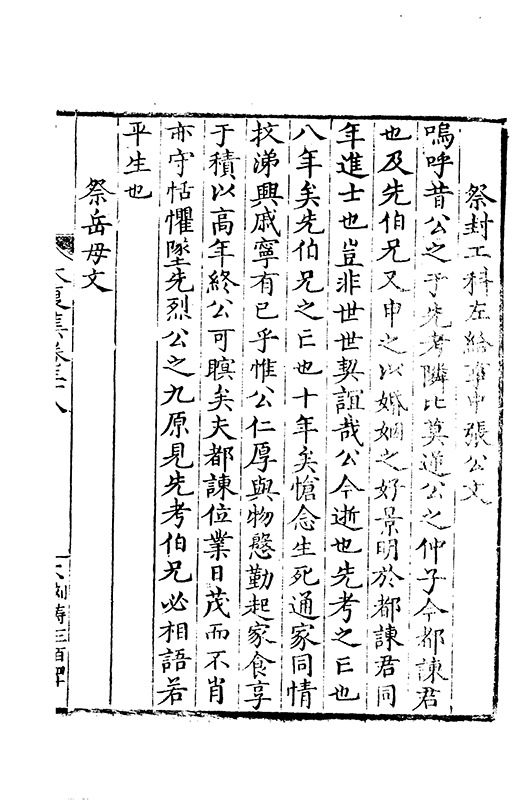 祭封工科左給事中張公文
嗚呼昔公之于先考隣比莫逆公之仲子今都諫君
也及先伯兄又申之以婚姻之好景明於都諫君同
年進士也豈非世世契誼哉公今逝也先考之亡也
八年矣先伯兄之亡也十年矣愴念生死通家同情
投涕興戚寧有已乎惟公仁厚與物慇勤起家食享
于積以高年終公可瞑矣夫都諫位業日茂而不肖
亦守恬懼墜先烈公之九原見先考伯兄必相語若
平生也
祭岳母文
大復集卷三十八